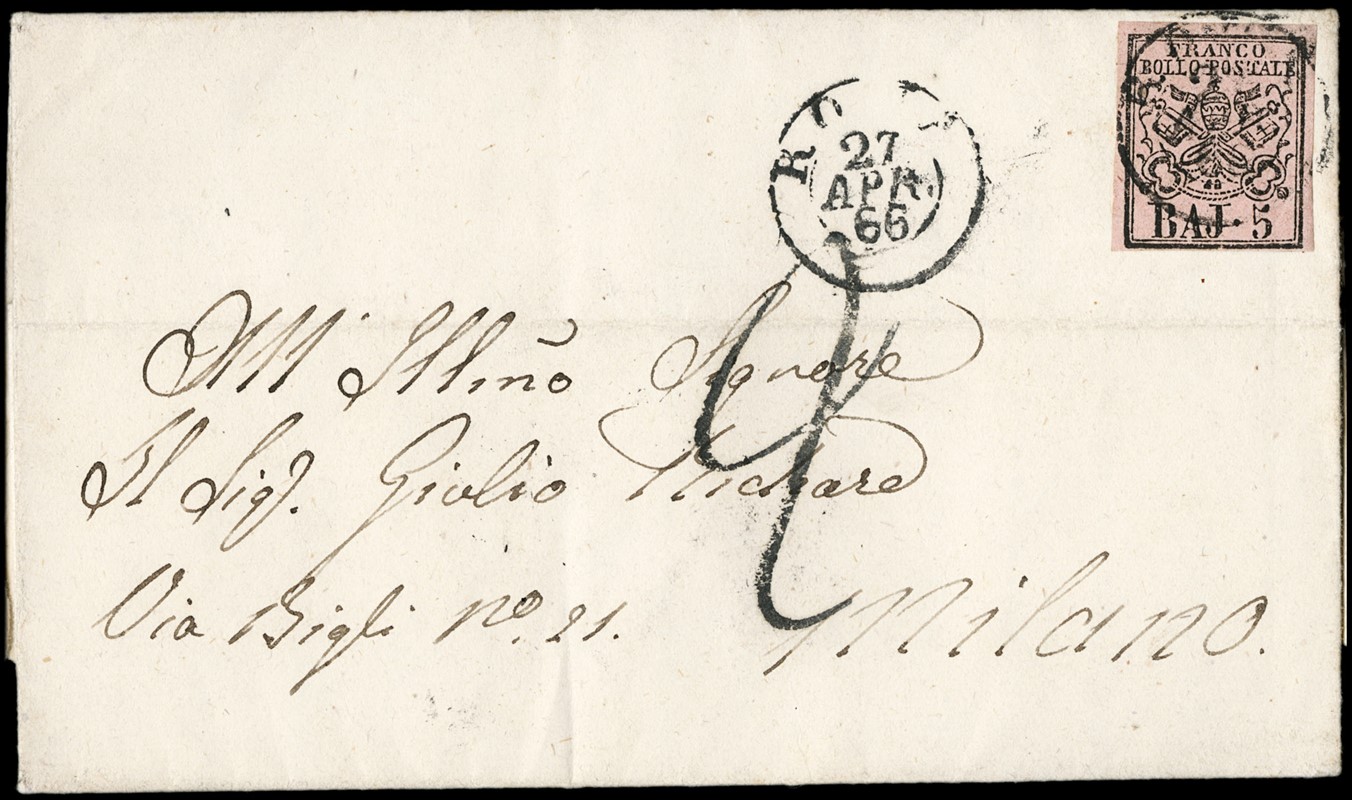 FRANCO
BOLLO POSTALE
BAJ. 5
RO
27
APR.
66
2
All' Illmo Signore
Il Sigr. Giulio
Via Bigli No. 21.
Milano.